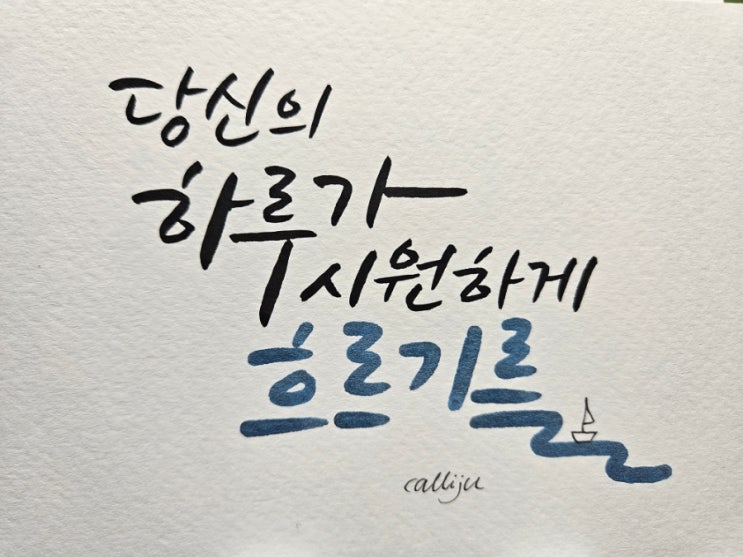 당신의
하루가
시원하게
흐르기를
calliju